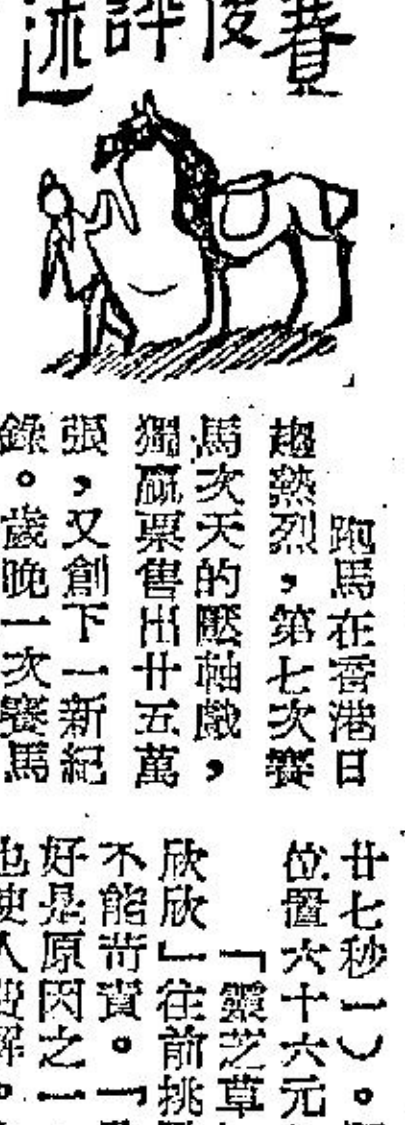 賽後評述
跑馬在香港日
趨熱烈，第七次賽
馬次天的壓軸戲，
獨贏票售出廿五萬
張，又創下一新紀
錄。歲晚一次賽馬
廿七秒一）。
位置六十六元
「靈芝草
欣欣」往前挑
不能苛責。「
好是原因之一
也使人費解。